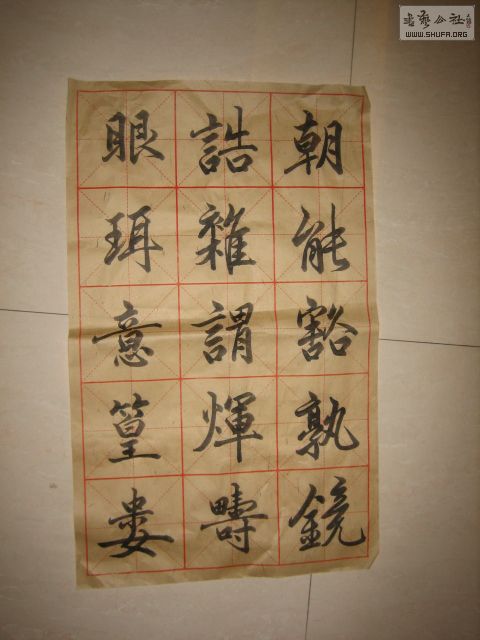 朝能豁孰鏡
誥雜謂煇疇
眼珥意篁婁
書藝公社
WWW.SHUFA.ORG